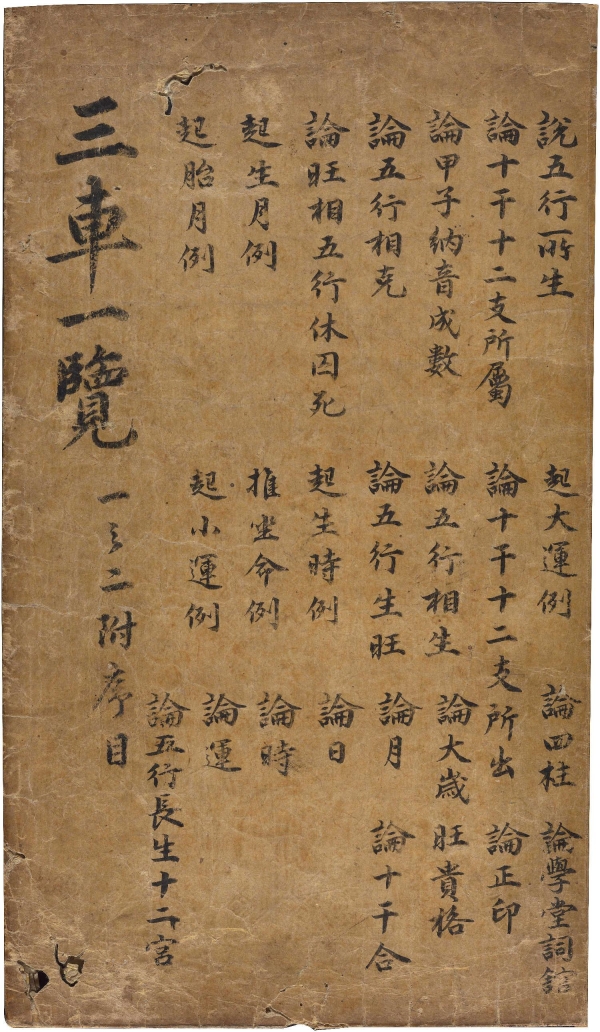 說五行所生
起大運例
論四柱
論學堂詞舘
論十干十二支所屬
論十干十二支所出
論正印
論甲子納音成數
論五行相生
論大歲
旺貴格
論五行相克
論五行生旺
論月
論十干合
論旺相五行休囚死
起生時例
論日
起生月例
推坐命例
論時
起胎月例
起小運例
論運
論五行長生十二宮
三車一覽
一之二附序目